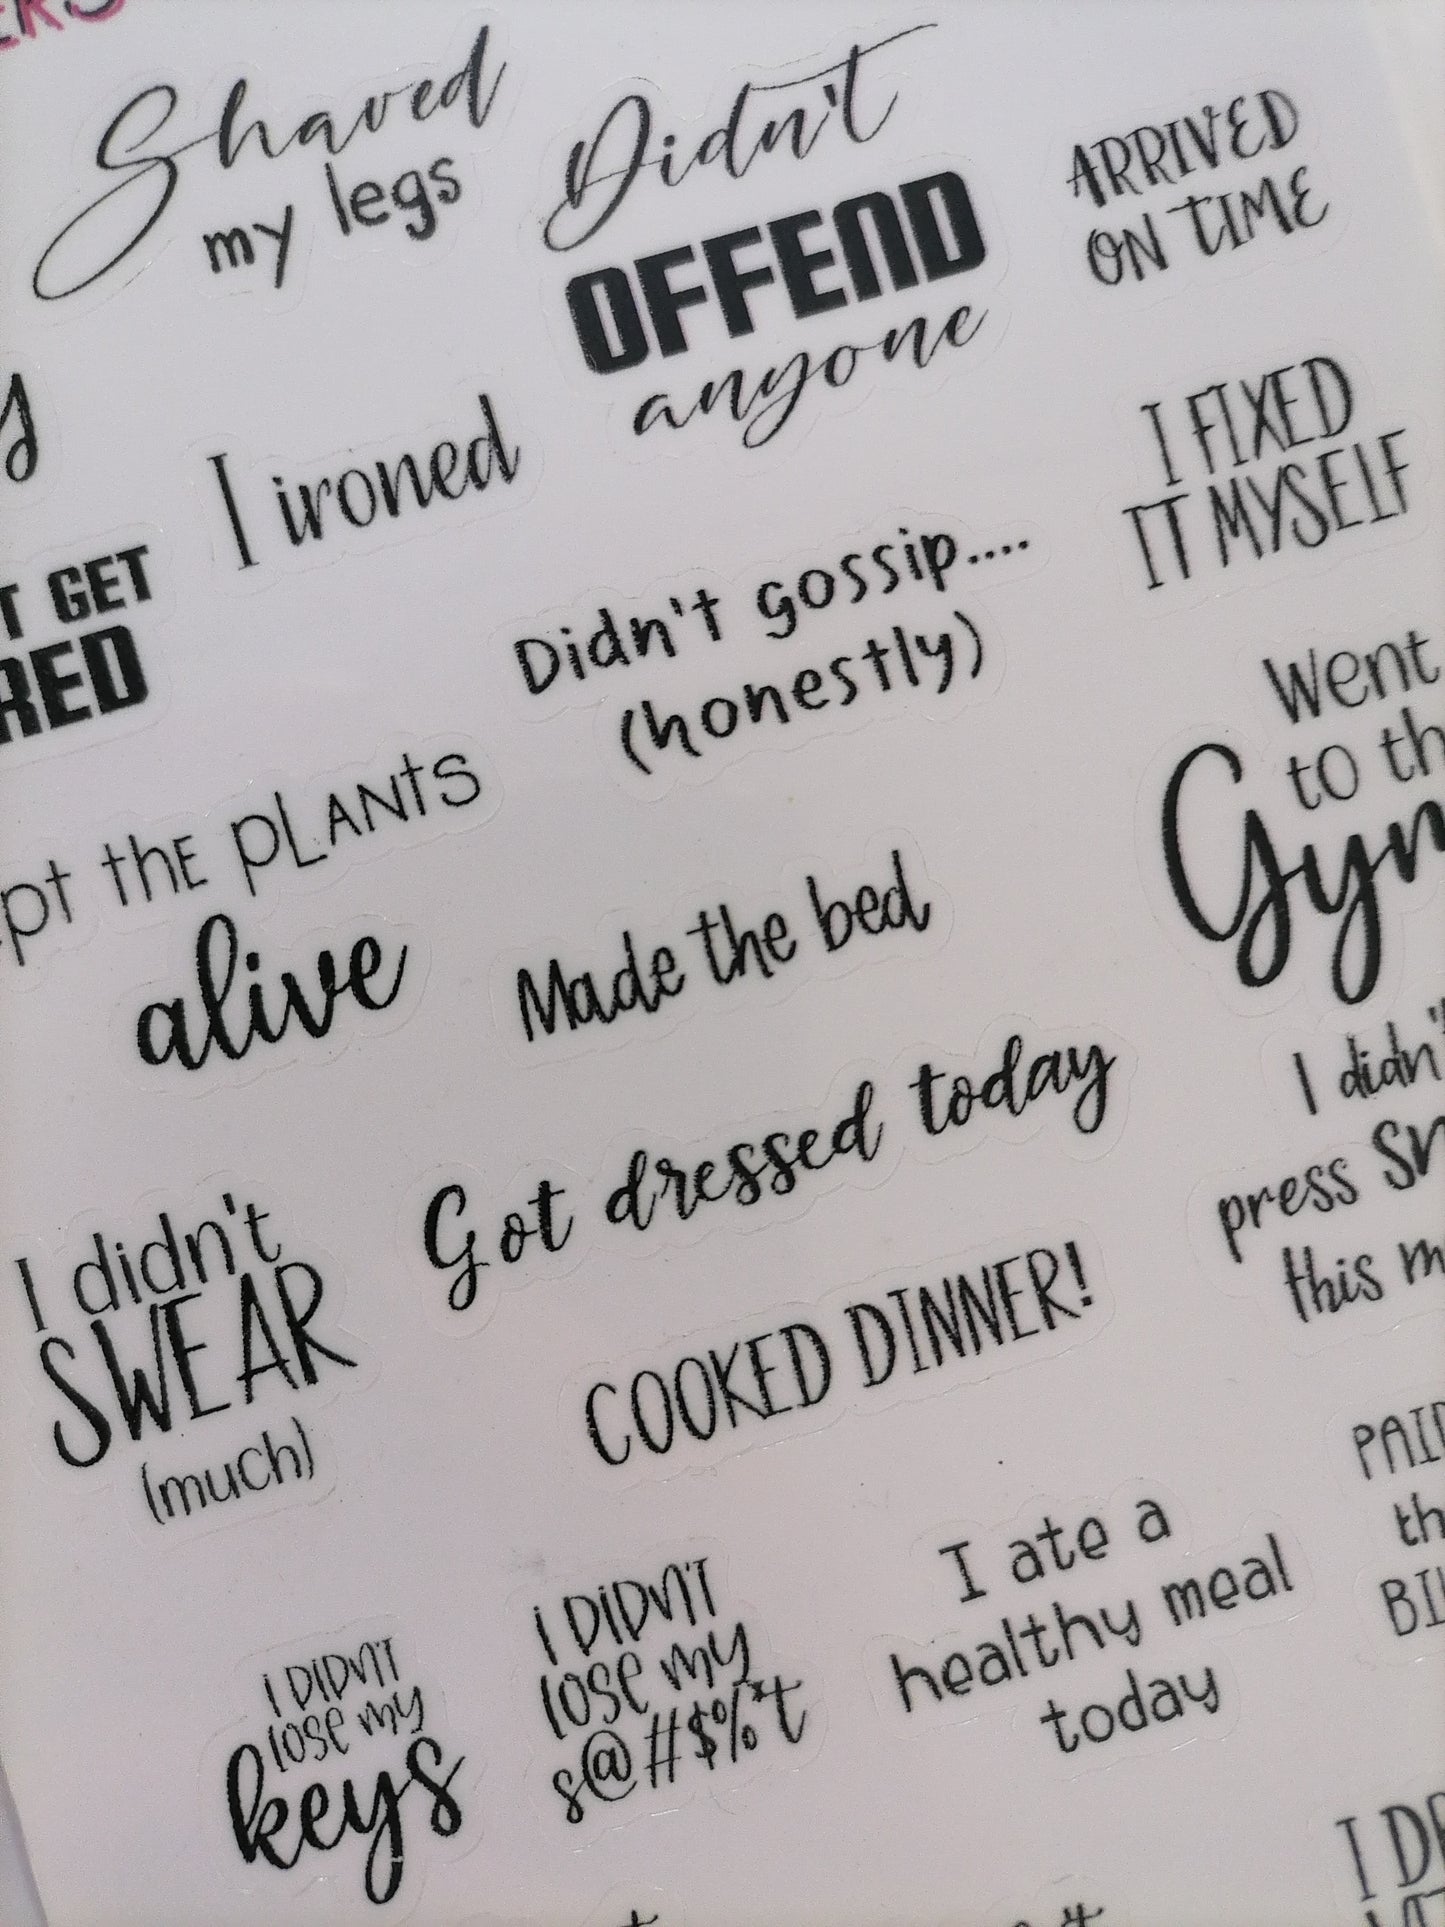 Shaved
my legs
Didn't
OFFEND
anyone
ARRIVED
ON TIME
I ironed
I FIXED
IT MYSELF
GET
Didn't gossip....
(honestly)
Went
to
the PLANTS
alive
Made the bed
I didn't
SWEAR
(much)
Got dressed today
press
this
COOKED DINNER!
I DIDN'T
lose my
keys
I DIDN'T
lose my
s@#$%*t
I ate a
healthy meal
today
I